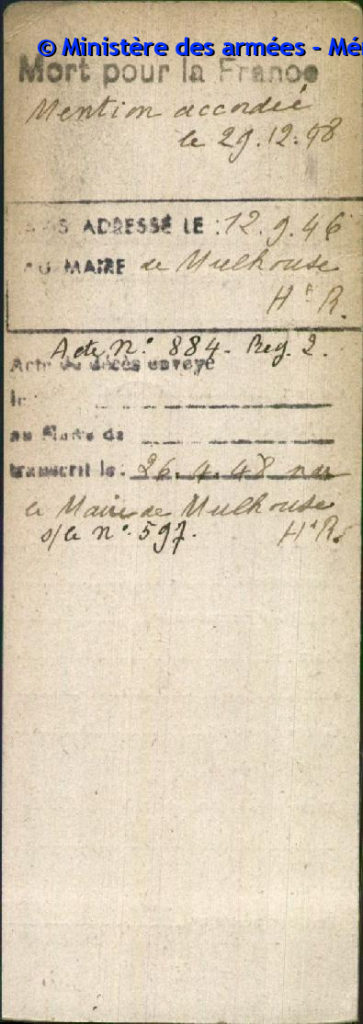 © Ministère des armées - Mé
Mort pour la France
Mention accordée
le 29.12.48
AVIS ADRESSÉ LE : 12.9.46
AU MAIRE de Mulhouse
Ht R.
Acte N° 884. Reg. 2.
Acte de décès envoyé
le
au Maire de
transcrit le : 26.4.48 par
le Maire de Mulhouse
s/le n° 597. Ht R.